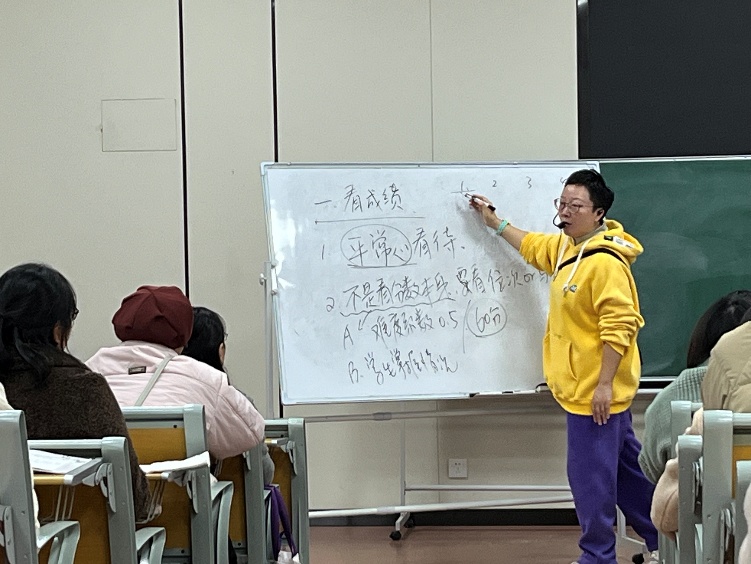 一.看成绩
1 2 3
1. 平常心看待.
2 不是看分数去 要看位次
A 难度系数0.5 60分
B. 学生